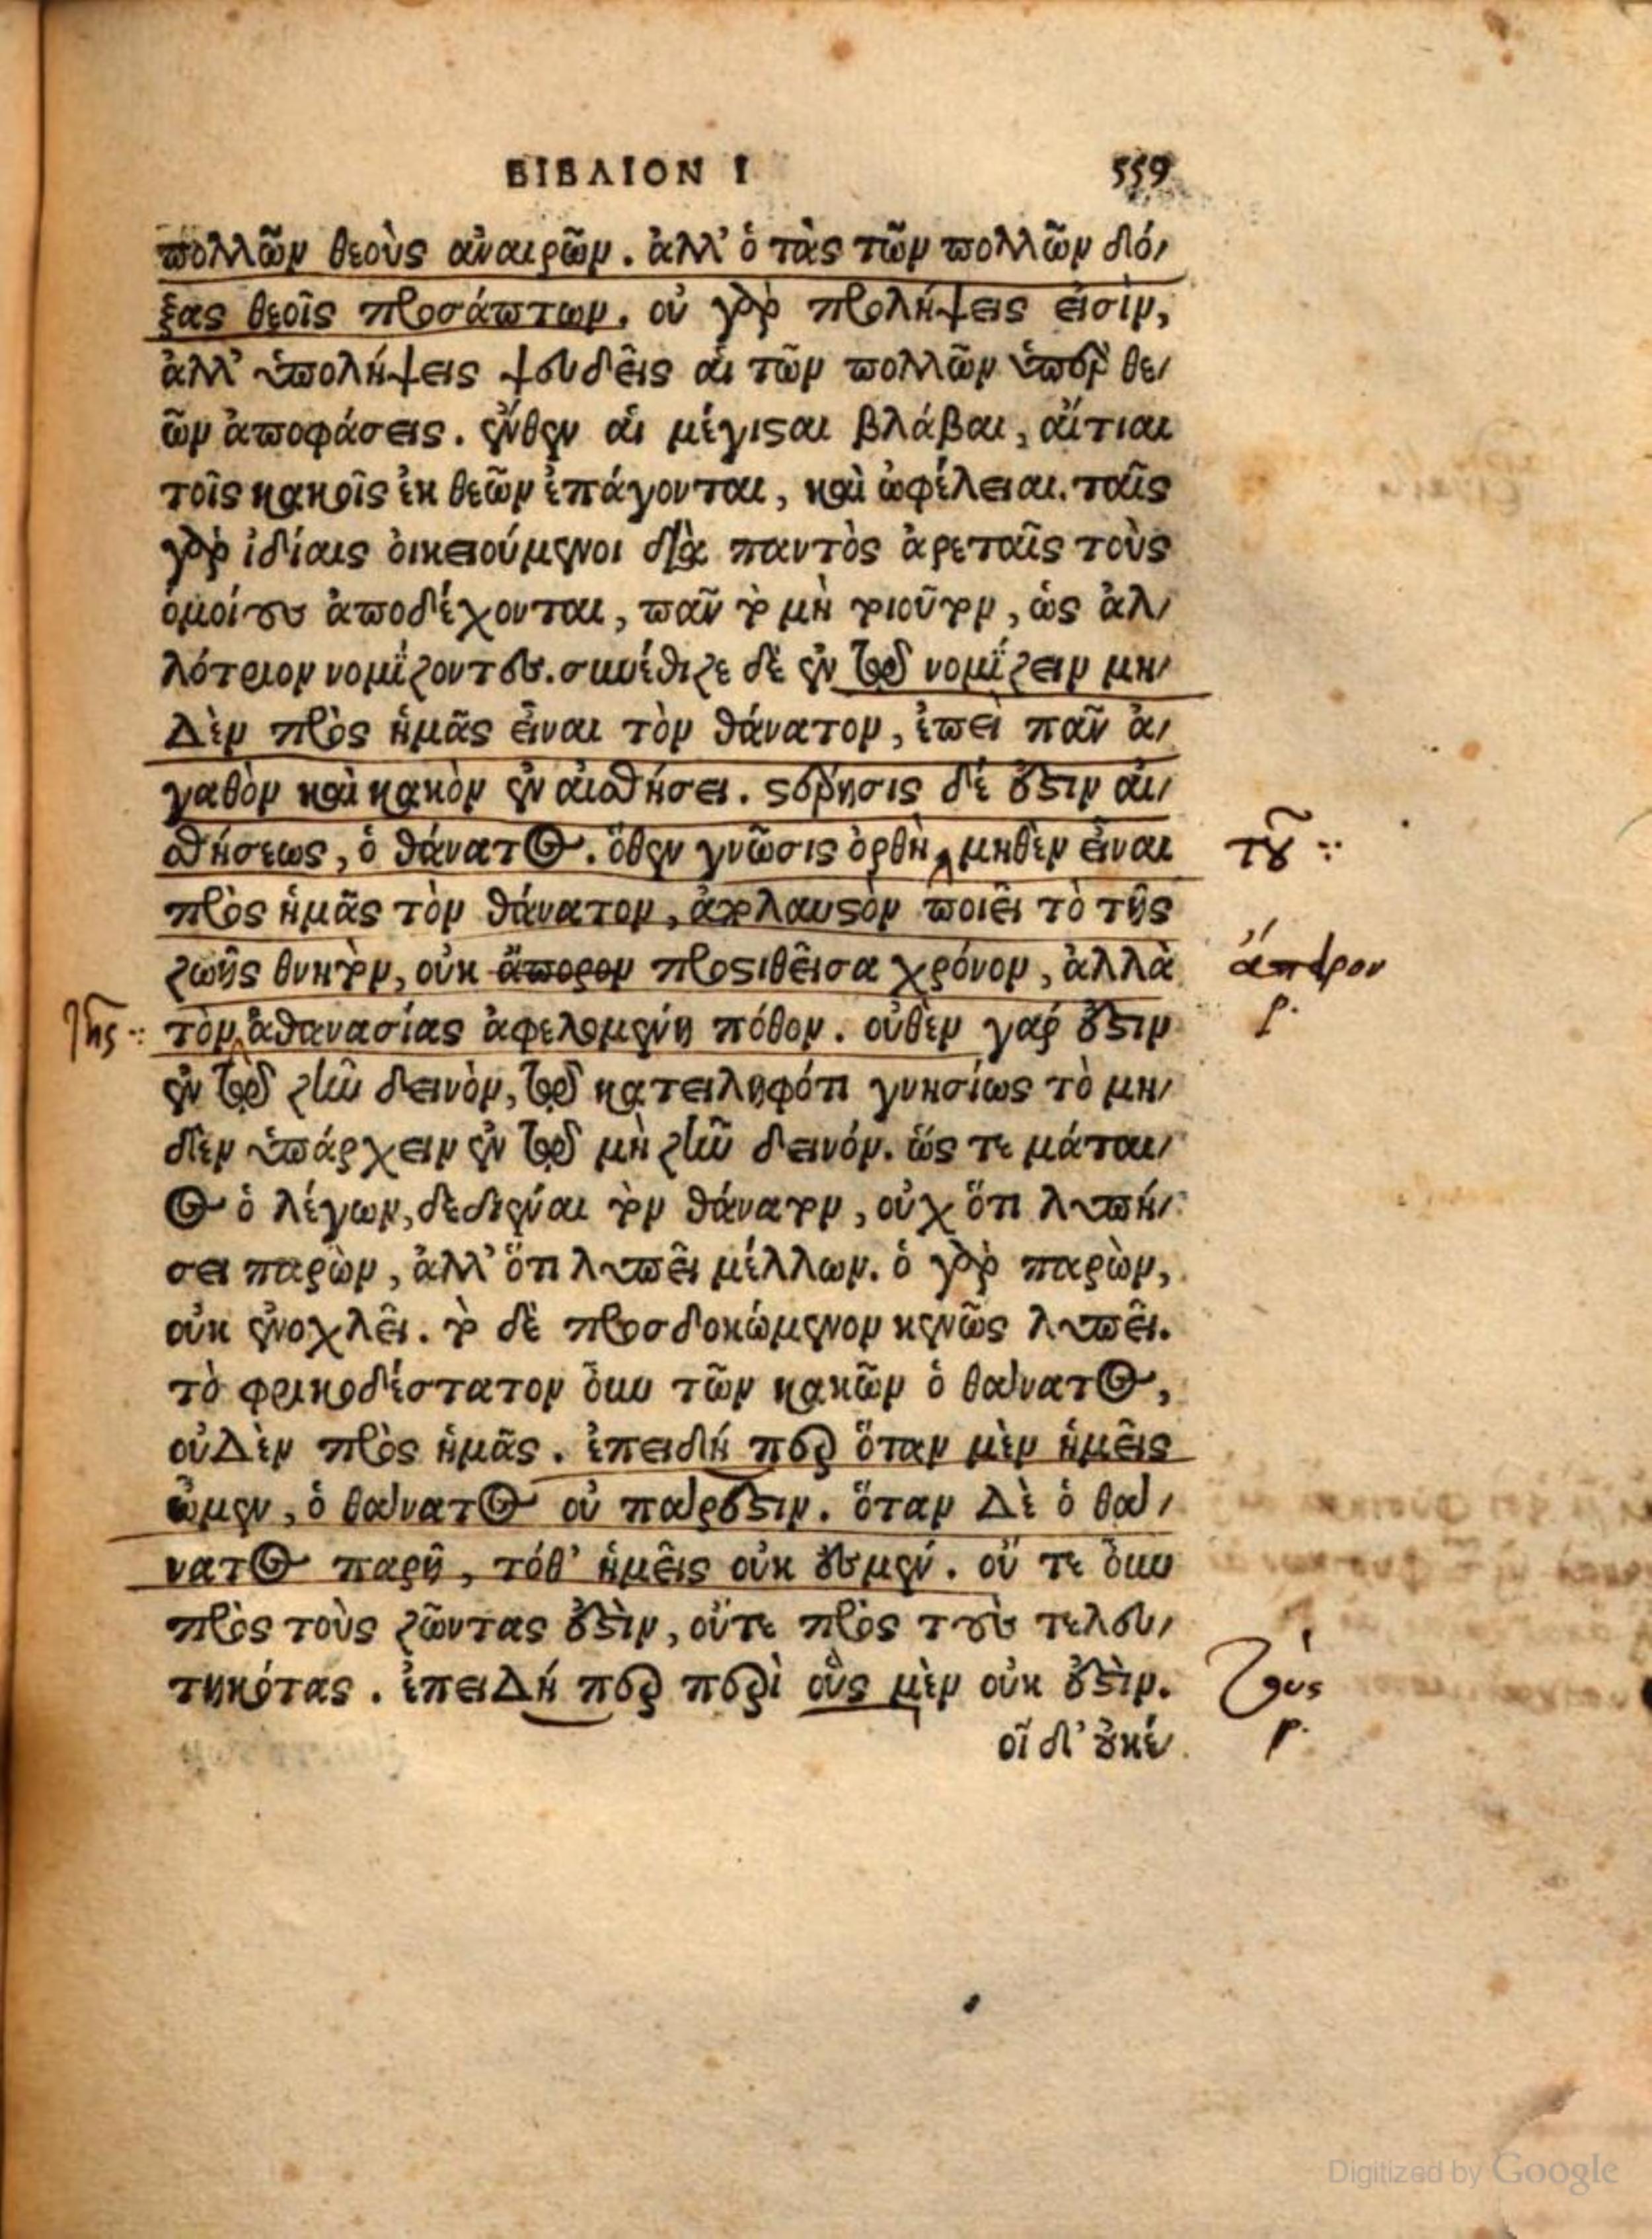 ΒΙΒΛΙΟΝ Ι 559
πολλῶν θεοὺς ἀναιρῶν. ἀλλ' ὁ τὰς τῶν πολλῶν δό-
ξας θεοῖς προσάπτων. οὐ γὰρ προλήψεις εἰσὶν,
ἀλλ' ὑπολήψεις ψευδεῖς αἱ τῶν πολλῶν ὑπὲρ θε-
ῶν ἀποφάσεις. ἔνθεν αἱ μέγισται βλάβαι, αἴτιαι
τοῖς κακοῖς ἐκ θεῶν ἐπάγονται, καὶ ὠφέλειαι. ταῖς
γὰρ ἰδίαις οἰκειούμενοι διὰ παντὸς ἀρεταῖς τοὺς
ὁμοίους ἀποδέχονται, πᾶν τὸ μὴ τοιοῦτον, ὡς ἀλ-
λότριον νομίζοντες. συνέθιζε δὲ ἐν τῷ νομίζειν μη-
δὲν πρὸς ἡμᾶς εἶναι τὸν θάνατον, ἐπεὶ πᾶν ἀ-
γαθὸν καὶ κακὸν ἐν αἰσθήσει. στέρησις δέ ἐστιν αἰ-
σθήσεως, ὁ θάνατος. ὅθεν γνῶσις ὀρθὴ μηθὲν εἶναι
τοῦ
πρὸς ἡμᾶς τὸν θάνατον, ἀπλαυστὸν ποιεῖ τὸ τῆς
ζωῆς θνητὸν, οὐκ ἄπορον προστιθεῖσα χρόνον, ἀλλὰ
ἄπειρον
τῆς
τὸν ἀθανασίας ἀφελομένη πόθον. οὐθὲν γάρ ἐστιν
ἐν τῷ ζῆν δεινὸν, τῷ κατειληφότι γνησίως τὸ μη-
δὲν ὑπάρχειν ἐν τῷ μὴ ζῆν δεινόν. ὥς τε μάται-
ος ὁ λέγων, δεδιέναι τὸν θάνατον, οὐχ ὅτι λυπή-
σει παρὼν, ἀλλ' ὅτι λυπεῖ μέλλων. ὁ γὰρ παρὼν,
οὐκ ἐνοχλεῖ. τὸ δὲ προσδοκώμενον κενῶς λυπεῖ.
τὸ φρικοδέστατον οὖν τῶν κακῶν ὁ θάνατος,
οὐδὲν πρὸς ἡμᾶς. ἐπειδή περ ὅταν μὲν ἡμεῖς
ὦμεν, ὁ θάνατος οὐ πάρεστιν. ὅταν δὲ ὁ θά-
νατος παρῇ, τόθ' ἡμεῖς οὐκ ἐσμέν. οὔ τε οὖν
πρὸς τοὺς ζῶντας ἐστὶν, οὔτε πρὸς τοὺς τελευ-
τηκότας. ἐπειδή περ περὶ οὓς μὲν οὐκ ἐστὶν.
οἳ δ' ἐκεί